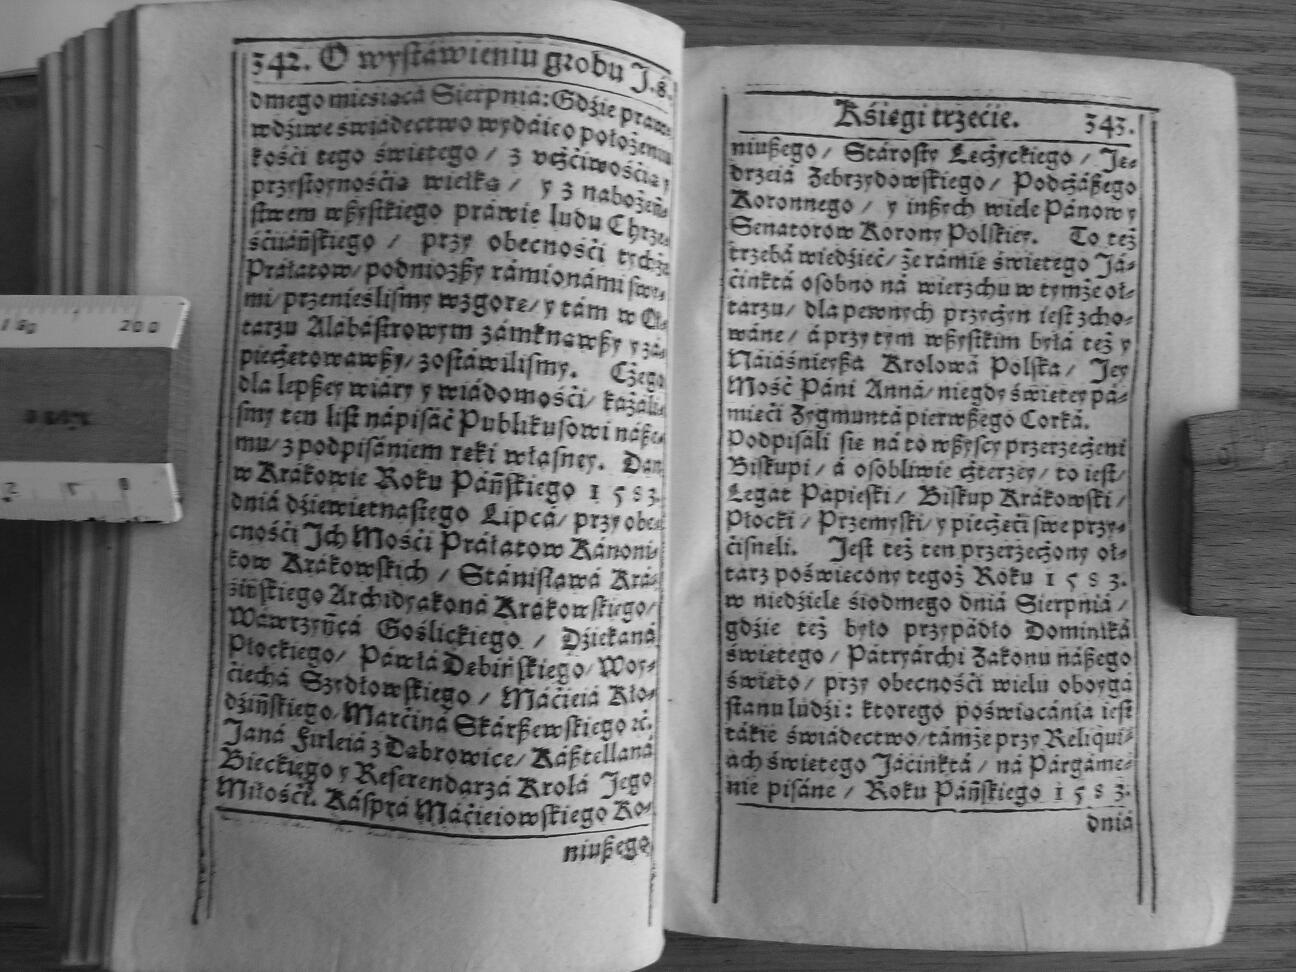 342. O wystáwieniu grobu J. s.
dmego miesiącá Sierpniá: Gdźie praw-
wdźiwe świádectwo wydáiąc o położeniu
kośći tego świętego / z vcżćiwośćią y
przystoynośćią wielką / y z nabożeń-
stwem wßystkiego práwie ludu Chrze-
śćiiáńskiego / przy obecnośći tychże
Práłatow / podniozßy rámionámi swe-
mi / przenieśliśmy wzgorę / y tám w Oł-
tarzu Alábástrowym zámknąwßy y zá-
piecżętowawßy / zostáwiliśmy. Cżego
dla lepßey wiáry y wiádomośći / kazáli-
smy ten list nápisáć Publikusowi náße-
mu / z podpisániem ręki własney. Dan
w Krákowie Roku Páńskiego 1583.
dniá dźiewiętnastego Lipcá / przy obe-
cnośći Ich Mośći Práłatow Kánoni-
kow Krákowskich / Stánisławá Krá-
źińskiego Archidyakoná Krákowskiego /
Wáwrzyńcá Goślickiego / Dźiekaná
Płockiego / Páwłá Dębińskiego / Woy-
ćiechá Szydłowskiego / Máćieiá Kło-
dźińskiego / Marćiná Skárßewskiego ꝛć.
Janá Firleiá z Dąbrowice / Káßtellaná
Bieckiego y Referendarzá Krolá Jego
Miłośći. Káspra Máćieiowskiego Ko-
niußego
Kśięgi trzećie. 343.
niußego / Stárosty Łęcżyckiego / Ję-
drzeiá Zebrzydowskiego / Podcżáßego
Koronnego / y inßych wiele Pánow y
Senatorow Korony Polskiey. To też
trzebá wiedźieć / że rámię świętego Já-
ćinktá osobno ná wierzchu w tymże oł-
tarzu / dla pewnych przycżyn iest zcho-
wáne / á przy tym wßystkim byłá też y
Náiáśnieyßa Krolowa Polska / Jey
Mość Páni Anná / niegdy świętey pá-
mięći Zygmuntá pierwßego Corká.
Podpisáli się ná to wßyscy przerzecżeni
Biskupi / á osobliwie cżterzey / to iest /
Legat Papieski / Biskup Krákowski /
Płocki / Przemyski / y piecżęći swe przy-
ćisnęli. Jest też ten przerzecżony oł-
tarz poświęcony tegoż Roku 1583.
w niedźielę siodmego dniá Sierpniá /
gdźie też było przypádło Dominiká
świętego / Pátryárchi Zakonu nášego
święto / przy obecnośći wielu oboygá
stanu ludźi: ktorego poświącánia iest
tákie świádectwo / támże przy Reliqui-
ach świętego Jáćinktá / ná Párgáme-
nie pisáne / Roku Páńskiego 1583.
dniá
200